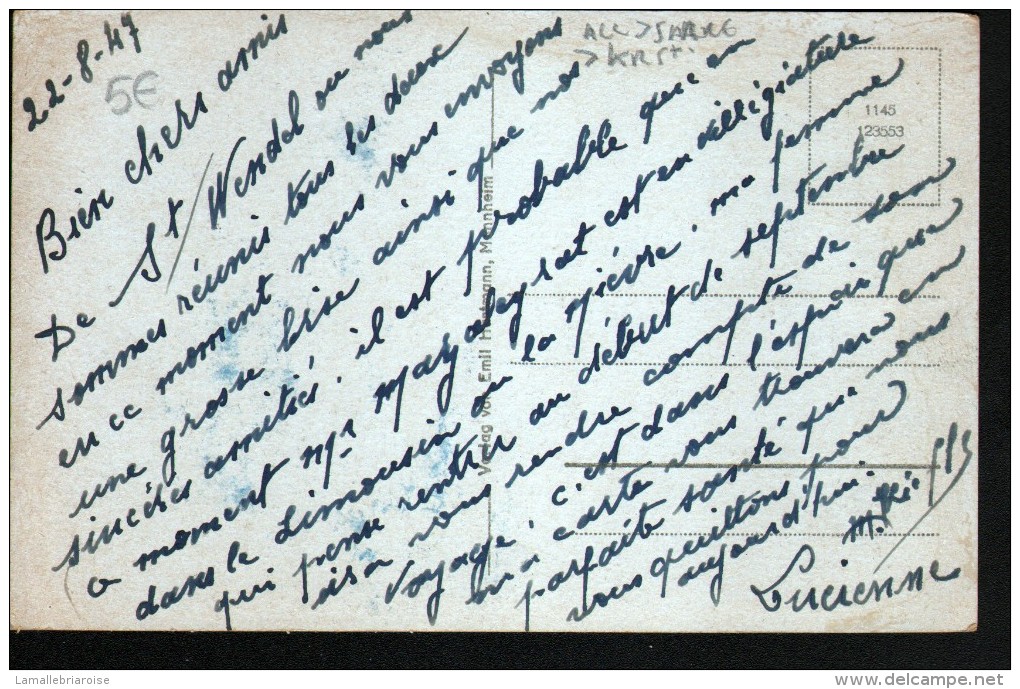 22-8-47
5€
ALL > SARRE
> KRST.
1145
123553
Bien chers amis
De St Wendel ou nous
sommes réunis tous les deux
en ce moment nous vous envoyons
une grosse bise ainsi que nos
sincères amitiés. il est probable qu'en
ce moment Mr Mazaleyrat est en villégiature
dans le Limousin ou la Nièvre. ma femme
qui pense rentrer au début de septembre
ira vous rendre compte de son
voyage. c'est dans l'espoir que
ma carte vous trouvera en
parfaite santé que nous
vous quittons pour
aujourd'hui.
Lucienne
Verlag von Emil Hartmann, Mannheim
Lamallebriaroise
delcampe.net